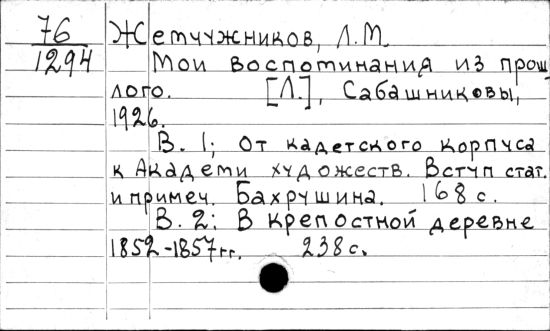 76
1294
Жемчужников, Л.М.
Мои воспоминания из прош
лого. [Л.], Сабашниковы,
1926.
В. 1; От кадетского корпуса
к Академи художеств. Вступ стат.
и примеч. Бахрушина. 168 с.
В. 2: В крепостной деревне
1852-1857гг. 238 с.